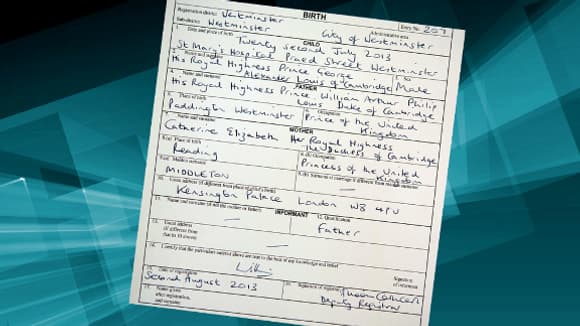 BIRTH
Entry No. 207
Registration district Westminster
Administrative area
Sub-district Westminster
City of Westminster
1. Date and place of birth
CHILD
Twenty second July 2013
St Mary's Hospital Praed Street Westminster
2. Name and surname
3. Sex
His Royal Highness Prince George
Alexander Louis of Cambridge
Male
4. Name and surname
FATHER
His Royal Highness Prince William Arthur Philip
Louis Duke of Cambridge
5. Place of birth
6. Occupation
Paddington Westminster
Prince of the United
Kingdom
7. Name and surname
MOTHER
Catherine Elizabeth Her Royal Highness
The Duchess of Cambridge
8.(a) Place of birth
8.(b) Occupation
Reading
Princess of the United
Kingdom
9.(a) Maiden surname
9.(b) Surname at marriage if different from maiden surname
MIDDLETON
10. Usual address (if different from place of child's birth)
Kensington Palace London W8 4PU
11. Name and surname (if not the mother or father)
INFORMANT
12. Qualification
Father
13. Usual address
(if different
from that in 10 above)
14. I certify that the particulars entered above are true to the best of my knowledge and belief
Signature
of informant
15. Date of registration
Second August 2013
16. Signature of registrar
Deputy Registrar
17. Name given
after registration,
and surname